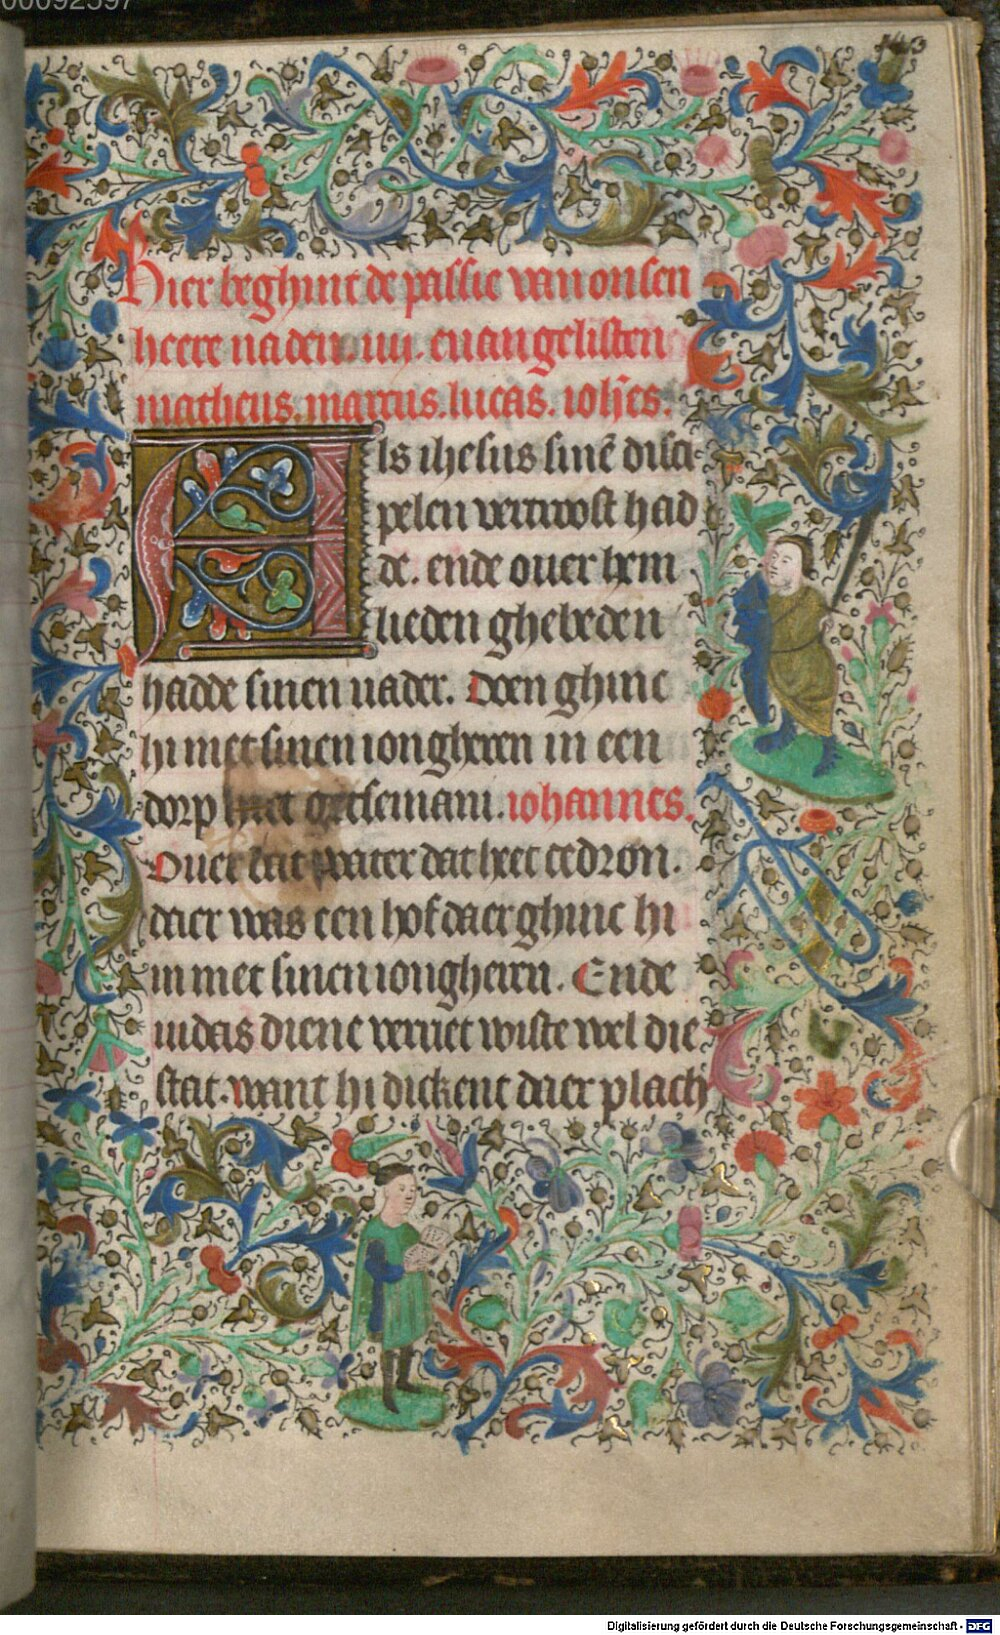 00092597
143
Hier beghint de passie van onsen
heere na den .iiij. euangelisten
matheus. marcus. lucas. ioħes.
Als ihesus sinē disci
pelen vertroost had
de. ende ouer hem
lieden ghebeden
hadde sinen uader. Doen ghinc
hi met sinen iongheren in een
dorp hiet getsemani. iohannes.
Ouer dat water dat heet cedron.
daer was een hof daer ghinc hi
in met sinen iongheren. Ende
iudas diene verriet wiste wel die
stat. want hi dickent daer plach
Digitalisierung gefördert durch die Deutsche Forschungsgemeinschaft - DFG